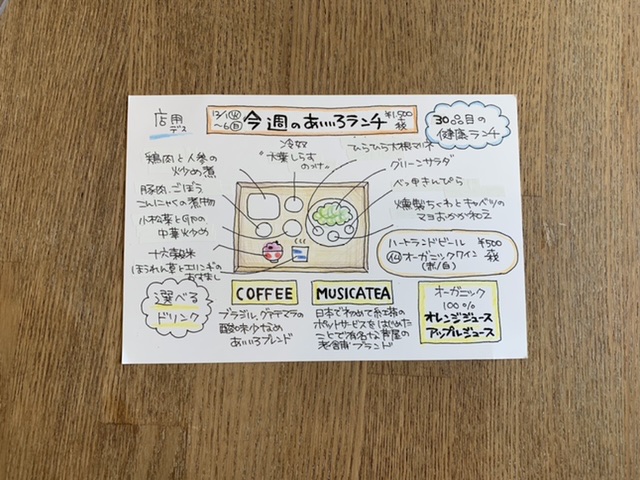 店用デス
12/1㊋〜6㊐ 今週のあいいろランチ ¥1,500 税
30品目の
健康ランチ
鶏肉と人参の
炒め煮
豚肉、ごぼう
こんにゃくの煮物
小松菜と
中華炒め
十六穀米
ほうれん草とエリンギの
お吸まし
冷奴
"大葉しらす
のっけ"
ひらひら大根マリネ
グリーンサラダ
べっ甲きんぴら
燻製ちくわとキャベツの
マヨおかか和え
ハートランドビール ¥500
オーガニックワイン 税
(赤/白)
選べる
ドリンク
COFFEE
ブラジル、グァテマラの
酸味少なめ
あいいろブレンド
MUSICATEA
日本で初めて紅茶の
ポットサービスをはじめた
ことで有名な芦屋の
老舗ブランド
オーガニック
100%
オレンジジュース
アップルジュース